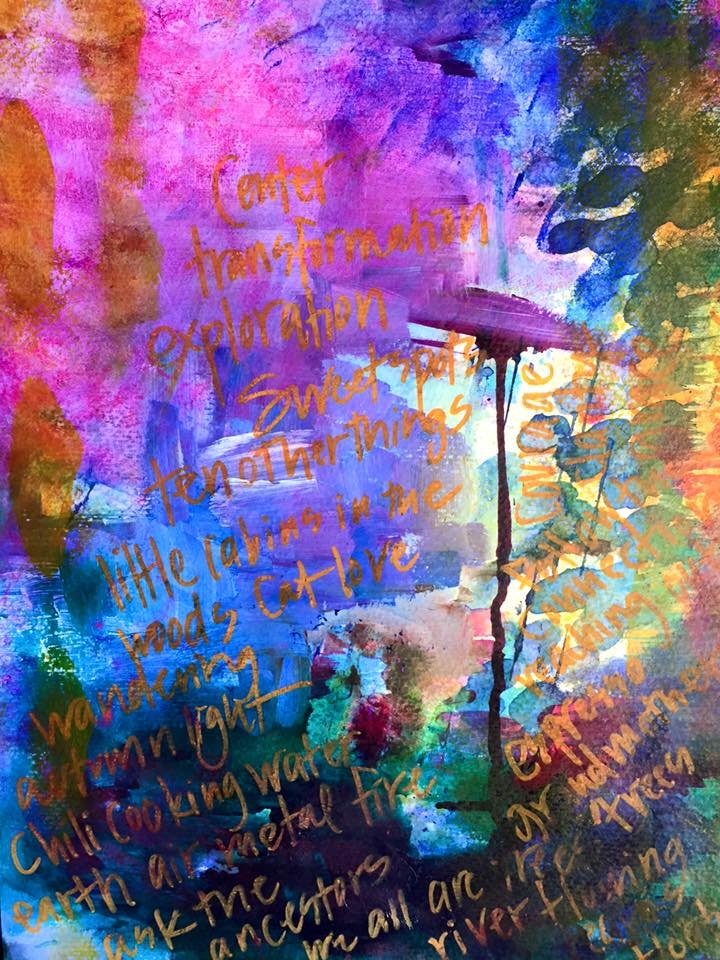 Center
transformation
exploration
Sweetspots
ten other things
little cabins in the
woods cat love
wandering
autumn light
Chili cooking water
earth air metal fire
ask the
ancestors
we all are the
river flowing
connecti
reaching
espresso
trees